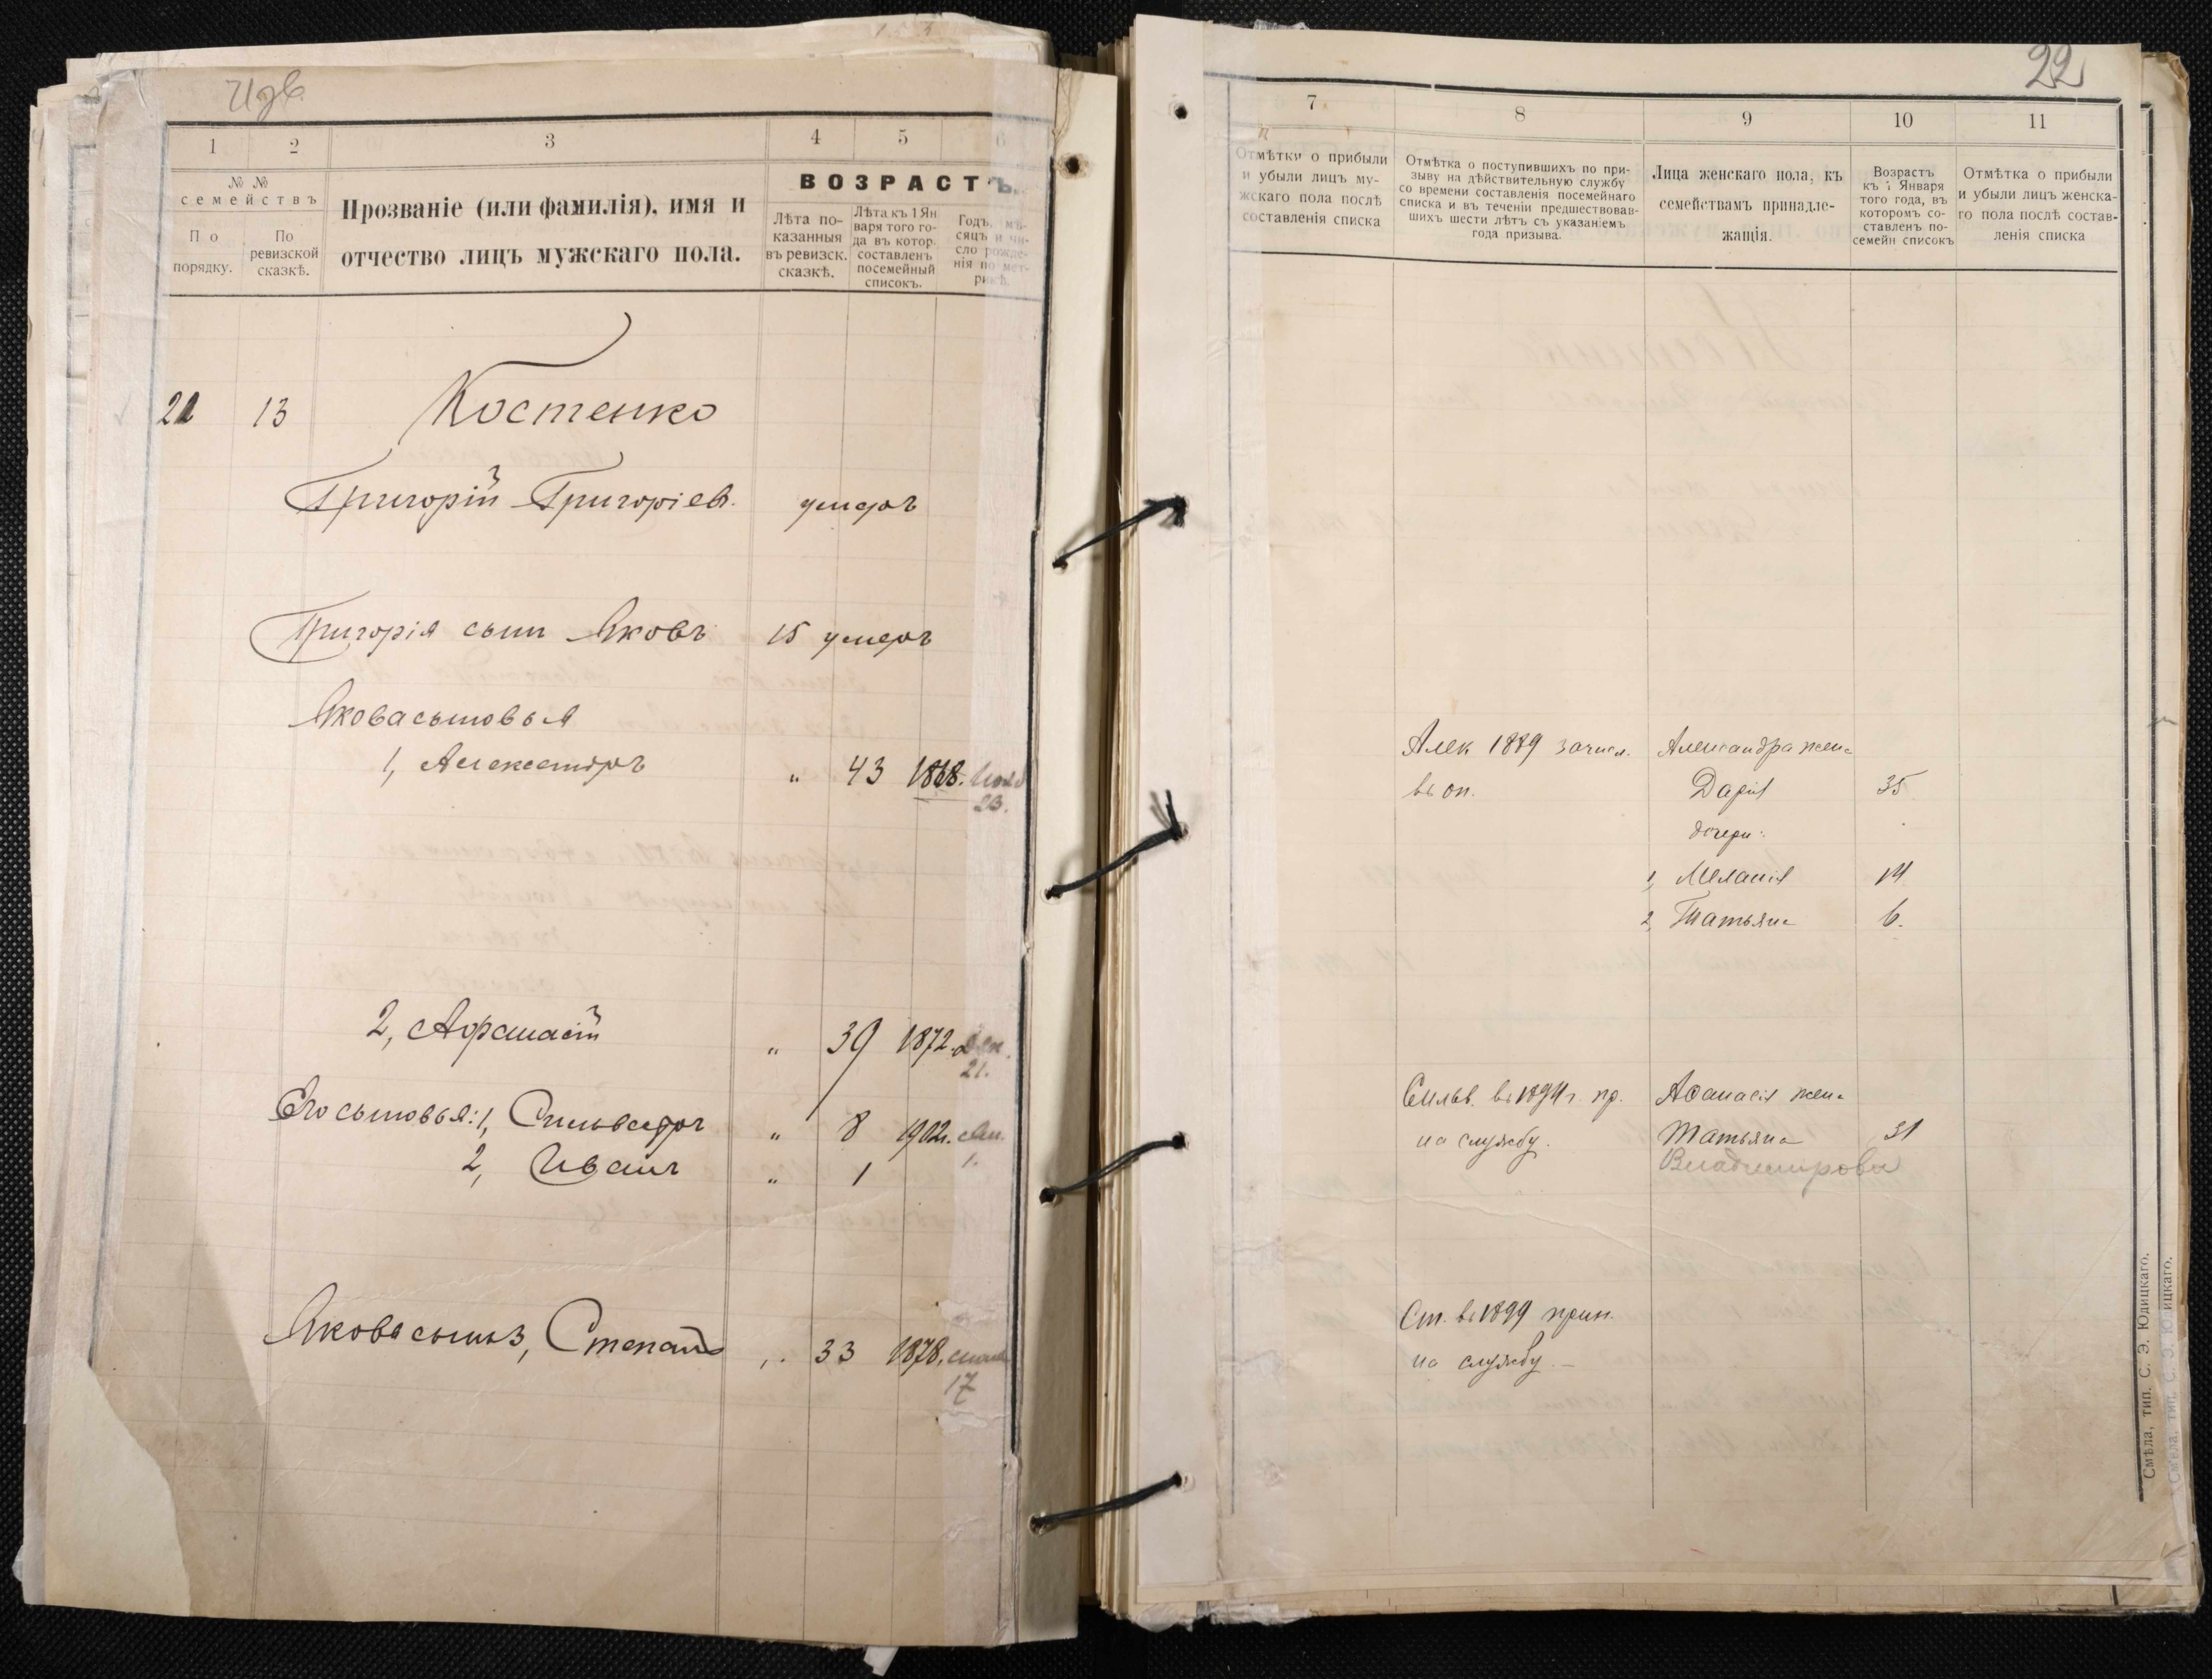 22
1 2 3 4 5 6
№ № семействъ
По порядку.
По ревизской сказкѣ.
Прозваніе (или фамилія), имя и
отчество лицъ мужскаго пола.
ВОЗРАСТЪ.
Лѣта по-
казанныя
въ ревизск.
сказкѣ.
Лѣта къ 1 Ян
варя того го-
да въ котор.
составленъ
посемейный
списокъ.
Годъ, мѣ-
сяцъ и чи-
сло рожде-
нія по мет-
рикѣ.
13 Костенко
Григорій Григоріев. умеръ
Григорія сын Яковъ 15 умеръ
Якова сыновья
1, Александръ " 43 1868.
23.
2, Афанасій " 39 1872. Дек.
21.
Его сыновья: 1, Сильвестръ " 8 1902. Ян.
1.
2, Иванъ " 1
Якова сынъ 3, Степанъ " 33 1878.
17
7 8 9 10 11
Отмѣтки о прибыли
и убыли лицъ му-
жскаго пола послѣ
составленія списка
Отмѣтка о поступившихъ по при-
зыву на дѣйствительную службу
со времени составленія посемейнаго
списка и въ теченіи предшествовав-
шихъ шести лѣтъ съ указаніемъ
года призыва.
Лица женскаго пола, къ
семействамъ принадле-
жащія.
Возрастъ
къ 1 Января
того года, въ
которомъ со-
ставленъ по-
семейн списокъ
Отмѣтка о прибыли
и убыли лицъ женска-
го пола послѣ состав-
ленія списка
Алек 1889 зачисл. Александра жена
въ оп. Дарія 35
дочери:
1, Меланія 14
2, Татьяна 6.
Сильв. въ 1894 г. пр. Афанасія жена
на службу. Татьяна 31
Владимирова
Ст. въ 1899 прин.
на службу.
Смѣла, тип. С. Э. Юдицкаго.